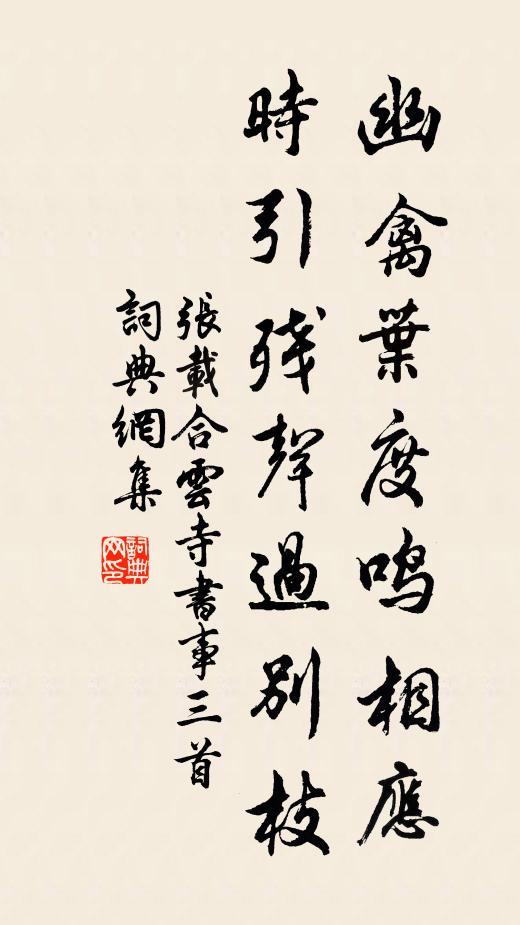 幽禽葉度鳴相應
時引殘聲過別枝
張載合雲寺書事三首
詞典網集
詞典網印